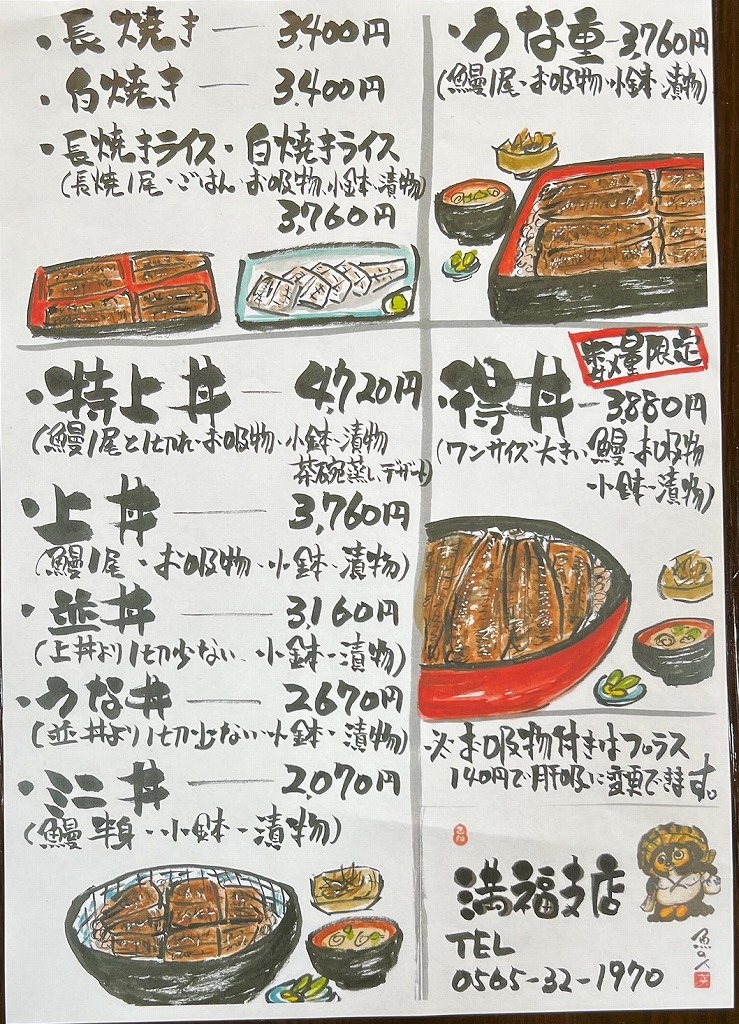 ・長焼き — 3,400円
・白焼き — 3,400円
・長焼きライス・白焼きライス
(長焼1尾・ごはん お吸物、小鉢・漬物)
3,760円
・うな重 - 3,760円
(鰻1尾・お吸物・小鉢・漬物)
・特上丼 — 4,720円
(鰻1尾と1切れ・お吸物、小鉢・漬物
茶碗蒸し、デザート)
・上丼 — 3,760円
(鰻1尾・お吸物、小鉢・漬物)
・並丼 — 3,160円
(上丼より1切少ない、小鉢-漬物)
・うな丼 — 2670円
(並丼より1切少ない・小鉢・漬物)
・ミニ丼 — 2,070円
(鰻半身・小鉢・漬物)
数量限定
・得丼 - 3,880円
(ワンサイズ大きい鰻・お吸物
小鉢-漬物)
※お吸物付きはプラス
140円で肝吸に変更できます。
満福支店
TEL
0565-32-1970